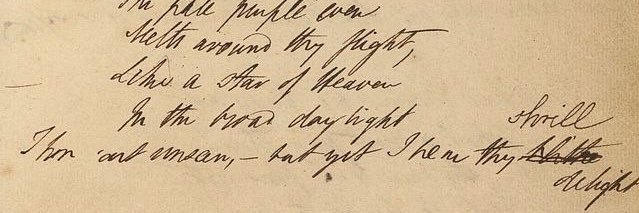 The pale purple even
Melts around thy flight,
Like a star of Heaven
In the broad day light
shrill
Thou art unseen, – but yet I hear thy blithe
delight